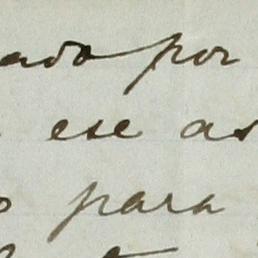 ado por
ese as
o para